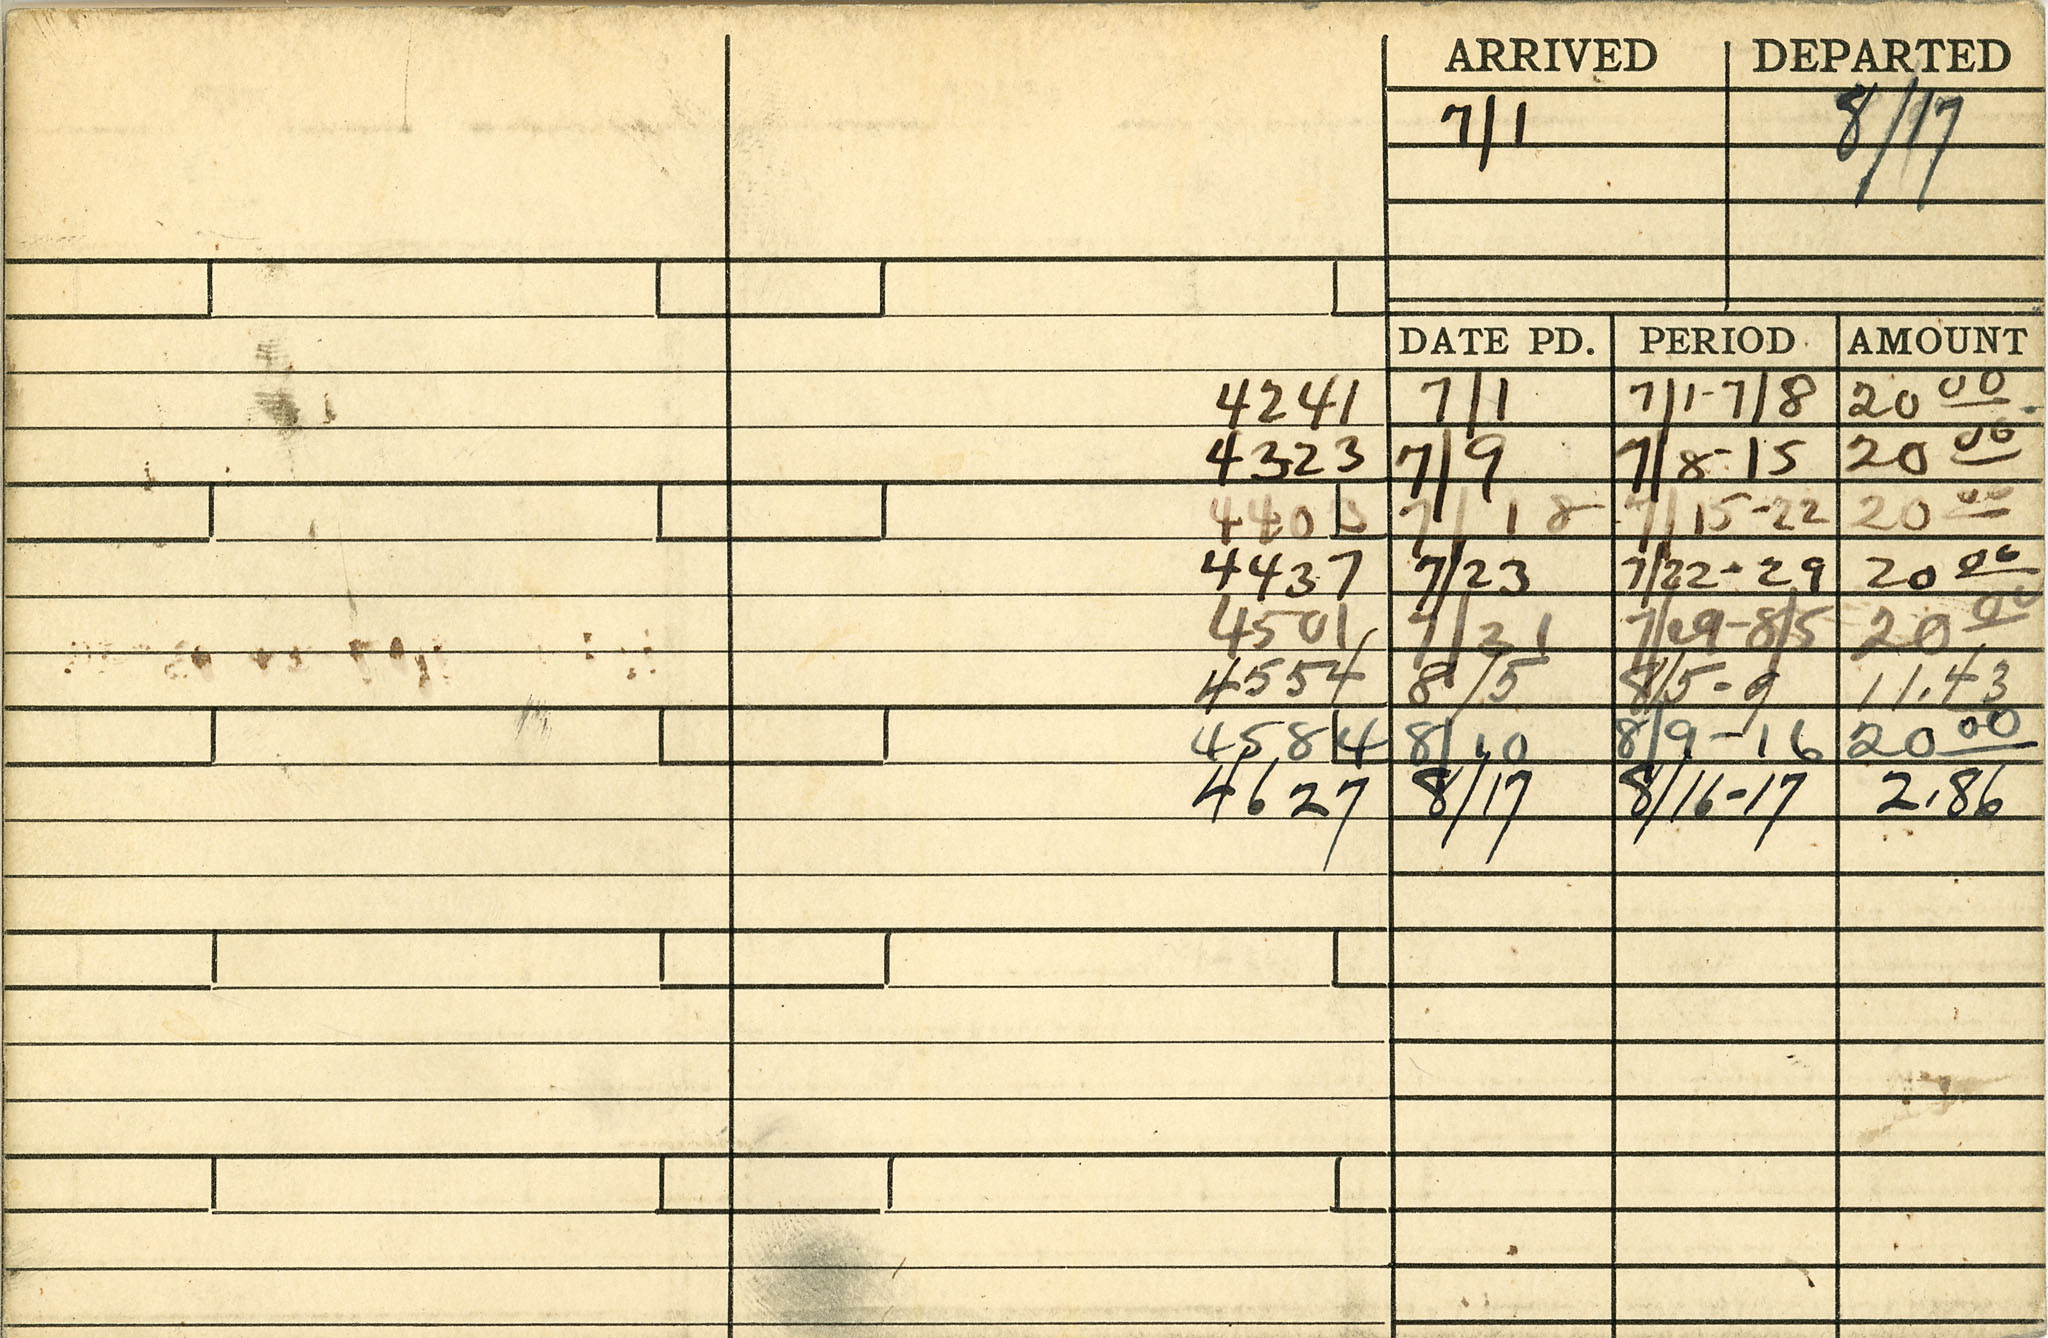 ARRIVED DEPARTED
7/1 8/17
DATE PD. PERIOD AMOUNT
4241 7/1 7/1-7/8 20 00
4323 7/9 7/8-15 20 00
7/18 7/15-22 20 00
4437 7/23 7/22-29 20 00
4501 7/31 7/29-8/5 20 00
4554 8/5 8/5-9 11.43
4584 8/10 8/9-16 20 00
4627 8/17 8/16-17 2.86